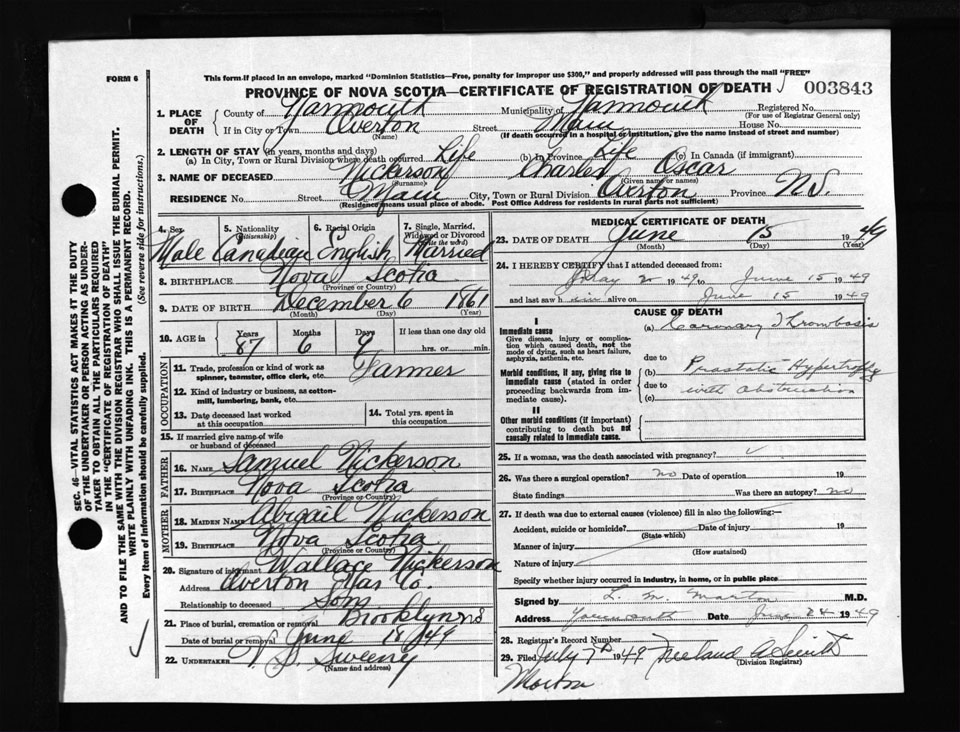 FORM 6
This form if placed in an envelope, marked "Dominion Statistics—Free, penalty for improper use $300," and properly addressed will pass through the mail "FREE"
PROVINCE OF NOVA SCOTIA—CERTIFICATE OF REGISTRATION OF DEATH
003843
1. PLACE OF DEATH
County of Yarmouth Municipality of Yarmouth Registered No.
(For use of Registrar General only)
If in City or Town Overton Street Main House No.
(Name) (If death occurred in a hospital or institution, give the name instead of street and number)
2. LENGTH OF STAY (in years, months and days)
(a) In City, Town or Rural Division where death occurred Life (b) In Province Life (c) In Canada (if immigrant)
3. NAME OF DECEASED Nickerson Charles Oscar
(Surname) (Given name or names)
RESIDENCE No. Street Main City, Town or Rural Division Overton Province N.S.
(Residence means usual place of abode. Post Office Address for residents in rural parts not sufficient)
4. Sex 5. Nationality (Citizenship) 6. Racial Origin 7. Single, Married, Widowed or Divorced (write the word)
Male Canadian English Married
8. BIRTHPLACE Nova Scotia
(Province or Country)
9. DATE OF BIRTH December 6 1861
(Month) (Day) (Year)
10. AGE in Years Months Days If less than one day old
87 6 9 hrs. or min.
OCCUPATION
11. Trade, profession or kind of work as spinner, teamster, office clerk, etc. Farmer
12. Kind of industry or business, as cotton-mill, lumbering, bank, etc.
13. Date deceased last worked at this occupation
14. Total yrs. spent in this occupation
15. If married give name of wife or husband of deceased
FATHER
16. NAME Samuel Nickerson
17. BIRTHPLACE Nova Scotia
(Province or Country)
MOTHER
18. MAIDEN NAME Abigail Nickerson
19. BIRTHPLACE Nova Scotia
(Province or Country)
20. Signature of informant Wallace Nickerson
Address Overton Yar Co.
Relationship to deceased Son
21. Place of burial, cremation or removal Brooklyn NS
Date of burial or removal June 18/1949
22. UNDERTAKER V. S. Sweeny
(Name and address)
MEDICAL CERTIFICATE OF DEATH
23. DATE OF DEATH June 15 1949
(Month) (Day) (Year)
24. I HEREBY CERTIFY that I attended deceased from:
May 2 1949 to June 15 1949
and last saw him alive on June 15 1949
CAUSE OF DEATH
I
Immediate cause
Give disease, injury or complication which caused death, not the mode of dying, such as heart failure, asphyxia, asthenia, etc.
(a) Coronary Thrombosis
due to
Morbid conditions, if any, giving rise to immediate cause (stated in order proceeding backwards from immediate cause).
(b) Prostatic Hypertrophy
due to with obstruction
(c)
II
Other morbid conditions (if important) contributing to death but not causally related to immediate cause.
25. If a woman, was the death associated with pregnancy?
26. Was there a surgical operation? no Date of operation 19
State findings Was there an autopsy? no
27. If death was due to external causes (violence) fill in also the following:—
Accident, suicide or homicide? Date of injury 19
(State which)
Manner of injury
(How sustained)
Nature of injury
Specify whether injury occurred in industry, in home, or in public place
Signed by L. M. Morton M.D.
Address Yarmouth Date June 24 1949
28. Registrar's Record Number
29. Filed July 7th 1949 Freeland A Smith
(Division Registrar)
Morton
SEC. 46—VITAL STATISTICS ACT MAKES IT THE DUTY
OF THE UNDERTAKER OR PERSON ACTING AS UNDER-
TAKER TO OBTAIN ALL THE PARTICULARS REQUIRED
IN THE "CERTIFICATE OF REGISTRATION OF DEATH"
AND TO FILE THE SAME WITH THE DIVISION REGISTRAR WHO SHALL ISSUE THE BURIAL PERMIT.
WRITE PLAINLY WITH UNFADING INK. THIS IS A PERMANENT RECORD.
Every item of information should be carefully supplied. (See reverse side for instructions.)